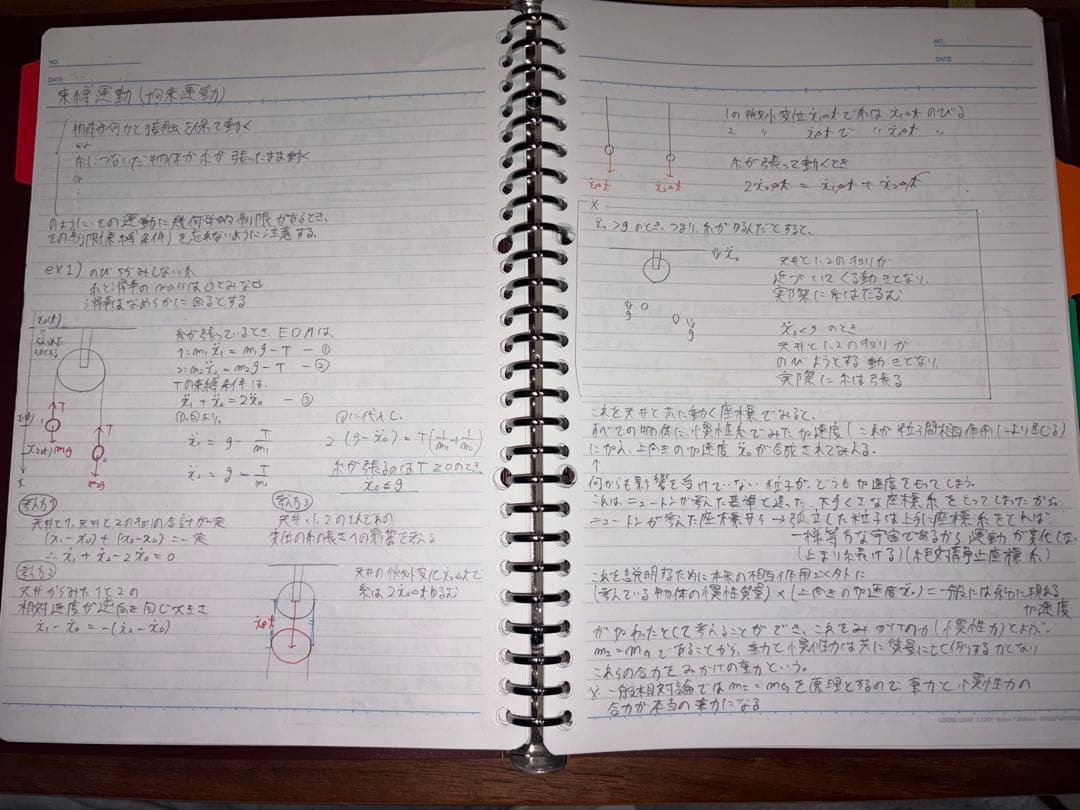 NO.
DATE
束縛運動(拘束運動)
物体が何かと接触を保って動く
or
糸につないだ物体が糸が張ったまま動く
or
のように、その運動に幾何学的制限があるとき、
その制限(束縛条件)を忘れないように注意する。
ex1) のびちぢみしない糸
糸と滑車のmassは0とみなせ
滑車はなめらかに回るとする
x₀(t)
糸が張っているとき、EOMは、
1:m₁ẍ₁ = m₁g − T − ①
2:m₂ẍ₂ = m₂g − T − ②
Tの束縛条件は、
ẍ₁ + ẍ₂ = 2ẍ₀ − ③
①,②より、
ẍ₁ = g − T/m₁
ẍ₂ = g − T/m₂
③に代入し、
2(g − ẍ₀) = T(1/m₁ + 1/m₂)
糸が張るのはT ≥ 0のとき
ẍ₀ ≤ g
x₁(t)
x₂(t)
x
T
T
1
2
mg
mg
考え方1
天井と1、天井と2の和の合計が一定
(x₁ − x₀) + (x₂ − x₀) = 一定
∴ ẍ₁ + ẍ₂ − 2ẍ₀ = 0
考え方2
天井からみた1と2の
相対速度が逆向き同じ大きさ
ẋ₁ − ẋ₀ = −(ẋ₂ − ẋ₀)
考え方3
天井、1、2のそれぞれの
変位の糸の長さへの影響を考える
天井の微小変化ẋ₀Δtで
糸は2ẋ₀Δtちぢむ
ẋ₀Δt
NO.
DATE
1の微小変位ẋ₁Δtで糸はẋ₁Δtのびる
2 〃 ẋ₂Δtで 〃 ẋ₂Δt 〃
糸が張って動くとき
2ẋ₀Δt = ẋ₁Δt + ẋ₂Δt
ẋ₁Δt
ẋ₂Δt
※
ẍ₀ > gのとき、つまり、糸がゆるんだとすると、
↓ẍ₀
天井と1,2のキョリが
近づいてくる動きとなり、
実際に糸はたるむ
g
g
ẍ₀ < g のとき
天井と1,2のキョリが
のびようとする動きとなり、
実際に糸は張る
これを天井と共に動く座標でみると、
すべての物体に、慣性系でみた加速度(これが粒子間相互作用により生じる)
に加え、上向きの加速度ẍ₀が合成されてみえる。
↑
何からも影響を受けていない粒子が、どうも加速度をもってしまう。
これはニュートンが考えた基準と違った、下手くそな座標系をとってしまったから。
ニュートンが考えた座標 → 孤立した粒子は上手に座標系をとれば、
一様等方な宇宙であるから、運動が変化しない
(止まり続ける)(絶対静止座標系)
これを説明するために本来の相互作用以外に
(考えている物体の慣性質量)×(上向きの加速度ẍ₀) = 一般には余分に現れる
加速度
が加わったとして考えることができ、これをみかけの力(慣性力)とよぶ。
mI = mGであることから、重力と慣性力は共に質量に比例する力となり
これらの合力をみかけの重力という。
※ 一般相対論ではmI = mGを原理とするので重力と慣性力の
合力が本当の重力になる
LOOSE LEAF